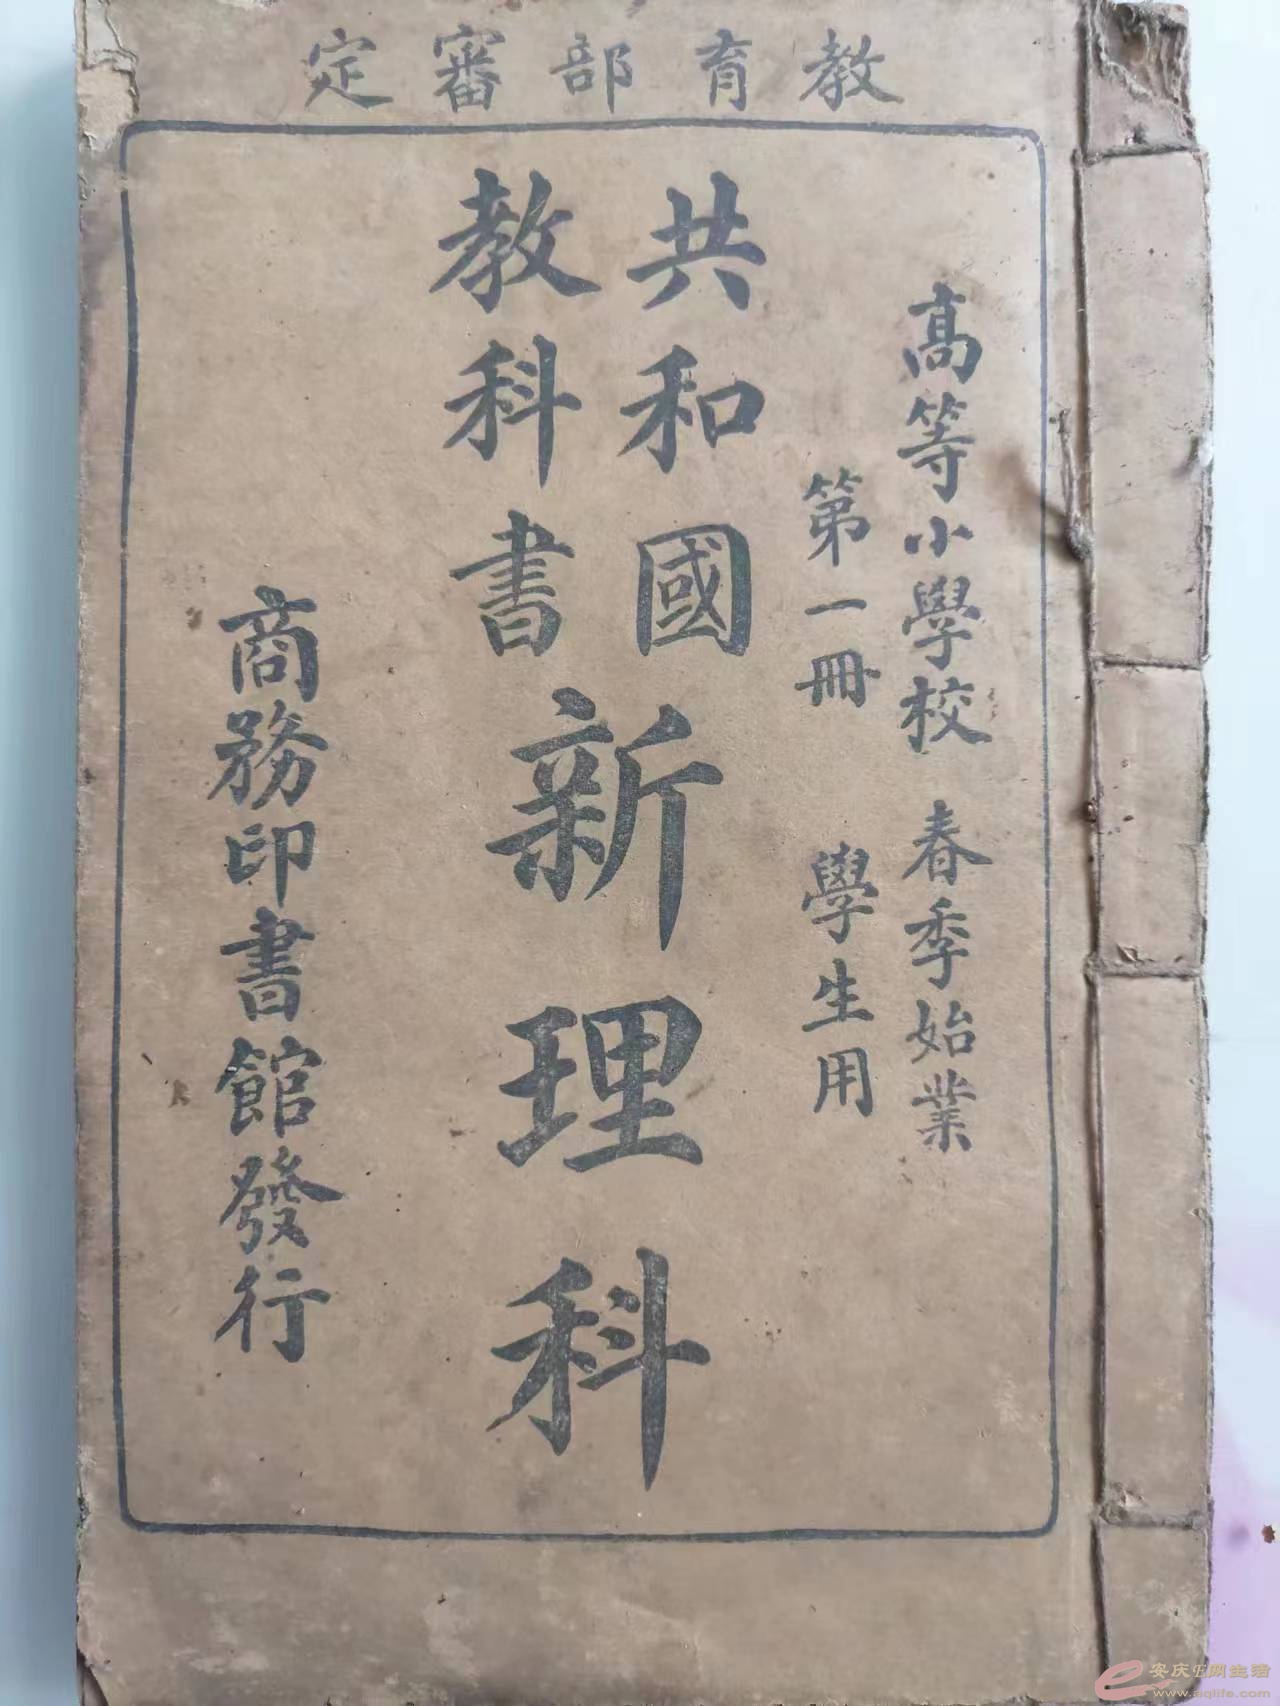 教育部審定
高等小學校 春季始業
第一冊 學生用
共和國
教科書
新理科
商務印書館發行
安庆E网生活
www.aqlife.com